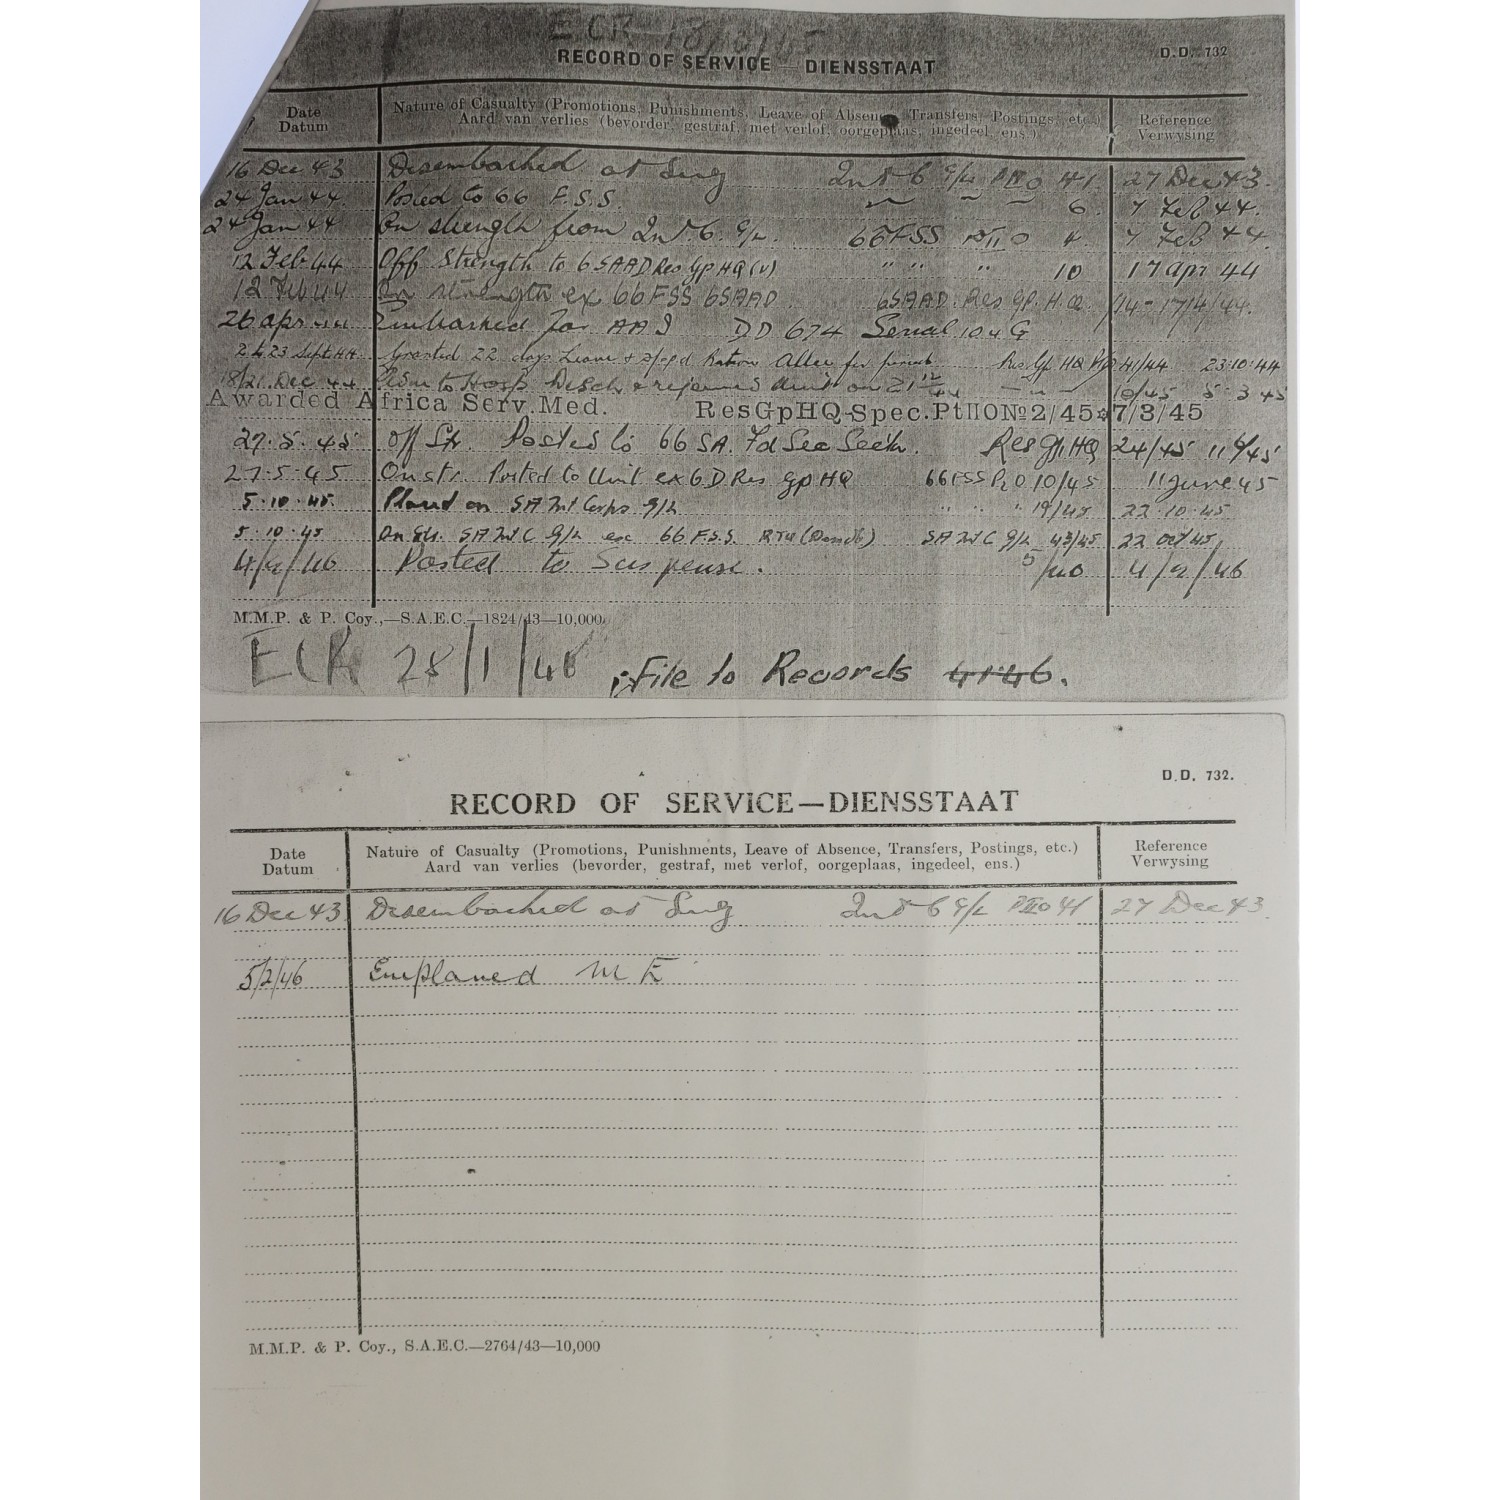 ECR 18/6/45
D.D. 732
RECORD OF SERVICE — DIENSSTAAT
Date Nature of Casualty (Promotions, Punishments, Leave of Absence, Transfers, Postings, etc.) Reference
Datum Aard van verlies (bevorder, gestraf, met verlof, oorgeplaas, ingedeel, ens.) Verwysing
16 Dec 43 Disembarked at Suez 6 G/L PII O 41 27 Dec 43.
24 Jan 44. Posted to 66 F.S.S. 6. 7 Feb 44.
24 Jan 44 On strength from 6. G/L. 66 FSS PII O 4. 7 Feb 44.
12 Feb 44 Off Strength to 6 SAAD Res Gp HQ (V) " " " 10 17 Apr 44
12 Feb 44 On strength ex 66 FSS 6SAAD 6SAAD. Res Gp. H.Q. 14 - 17/4/44.
26 Apr 44 Embarked for AAI DD 674 Serial 10 G
2 to 23 Sept 44. Granted 22 days Leave & Ration Allce for period Res Gp HQ 41/44 23.10.44
18/21. Dec 44 Adm to Hosp. Disch & rejoined Unit on 21 12/44 — — 10/45 5.3.45
Awarded Africa Serv.Med. ResGpHQ-Spec.PtIIONo2/45*7/3/45
27.5.45 Off Str. Posted to 66 SA. Fd Sec Sectn. Res Gp HQ 24/45 11/6/45
27.5.45 On str. Posted to Unit ex 6 D Res Gp HQ 66 FSS P2 O 10/45 11 June 45
5.10.45. Placed on SA Int Corps G/L " " " 19/45 22.10.45
5.10.45 On Str. SA Int C G/L ex 66 F.S.S. RTU SA Int C G/L 43/45 22 Oct 45.
4/2/46 Posted to Suspense. 5/40 4/2/46
M.M.P. & P. Coy.,—S.A.E.C.—1824/43—10,000.
ECR 28/1/46 File to Records 4146.
D.D. 732.
RECORD OF SERVICE—DIENSSTAAT
Date Nature of Casualty (Promotions, Punishments, Leave of Absence, Transfers, Postings, etc.) Reference
Datum Aard van verlies (bevorder, gestraf, met verlof, oorgeplaas, ingedeel, ens.) Verwysing
16 Dec 43 Disembarked at Suez 6 G/L PII O 41 27 Dec 43.
5/2/46 Emplaned M E
M.M.P. & P. Coy., S.A.E.C.—2764/43—10,000